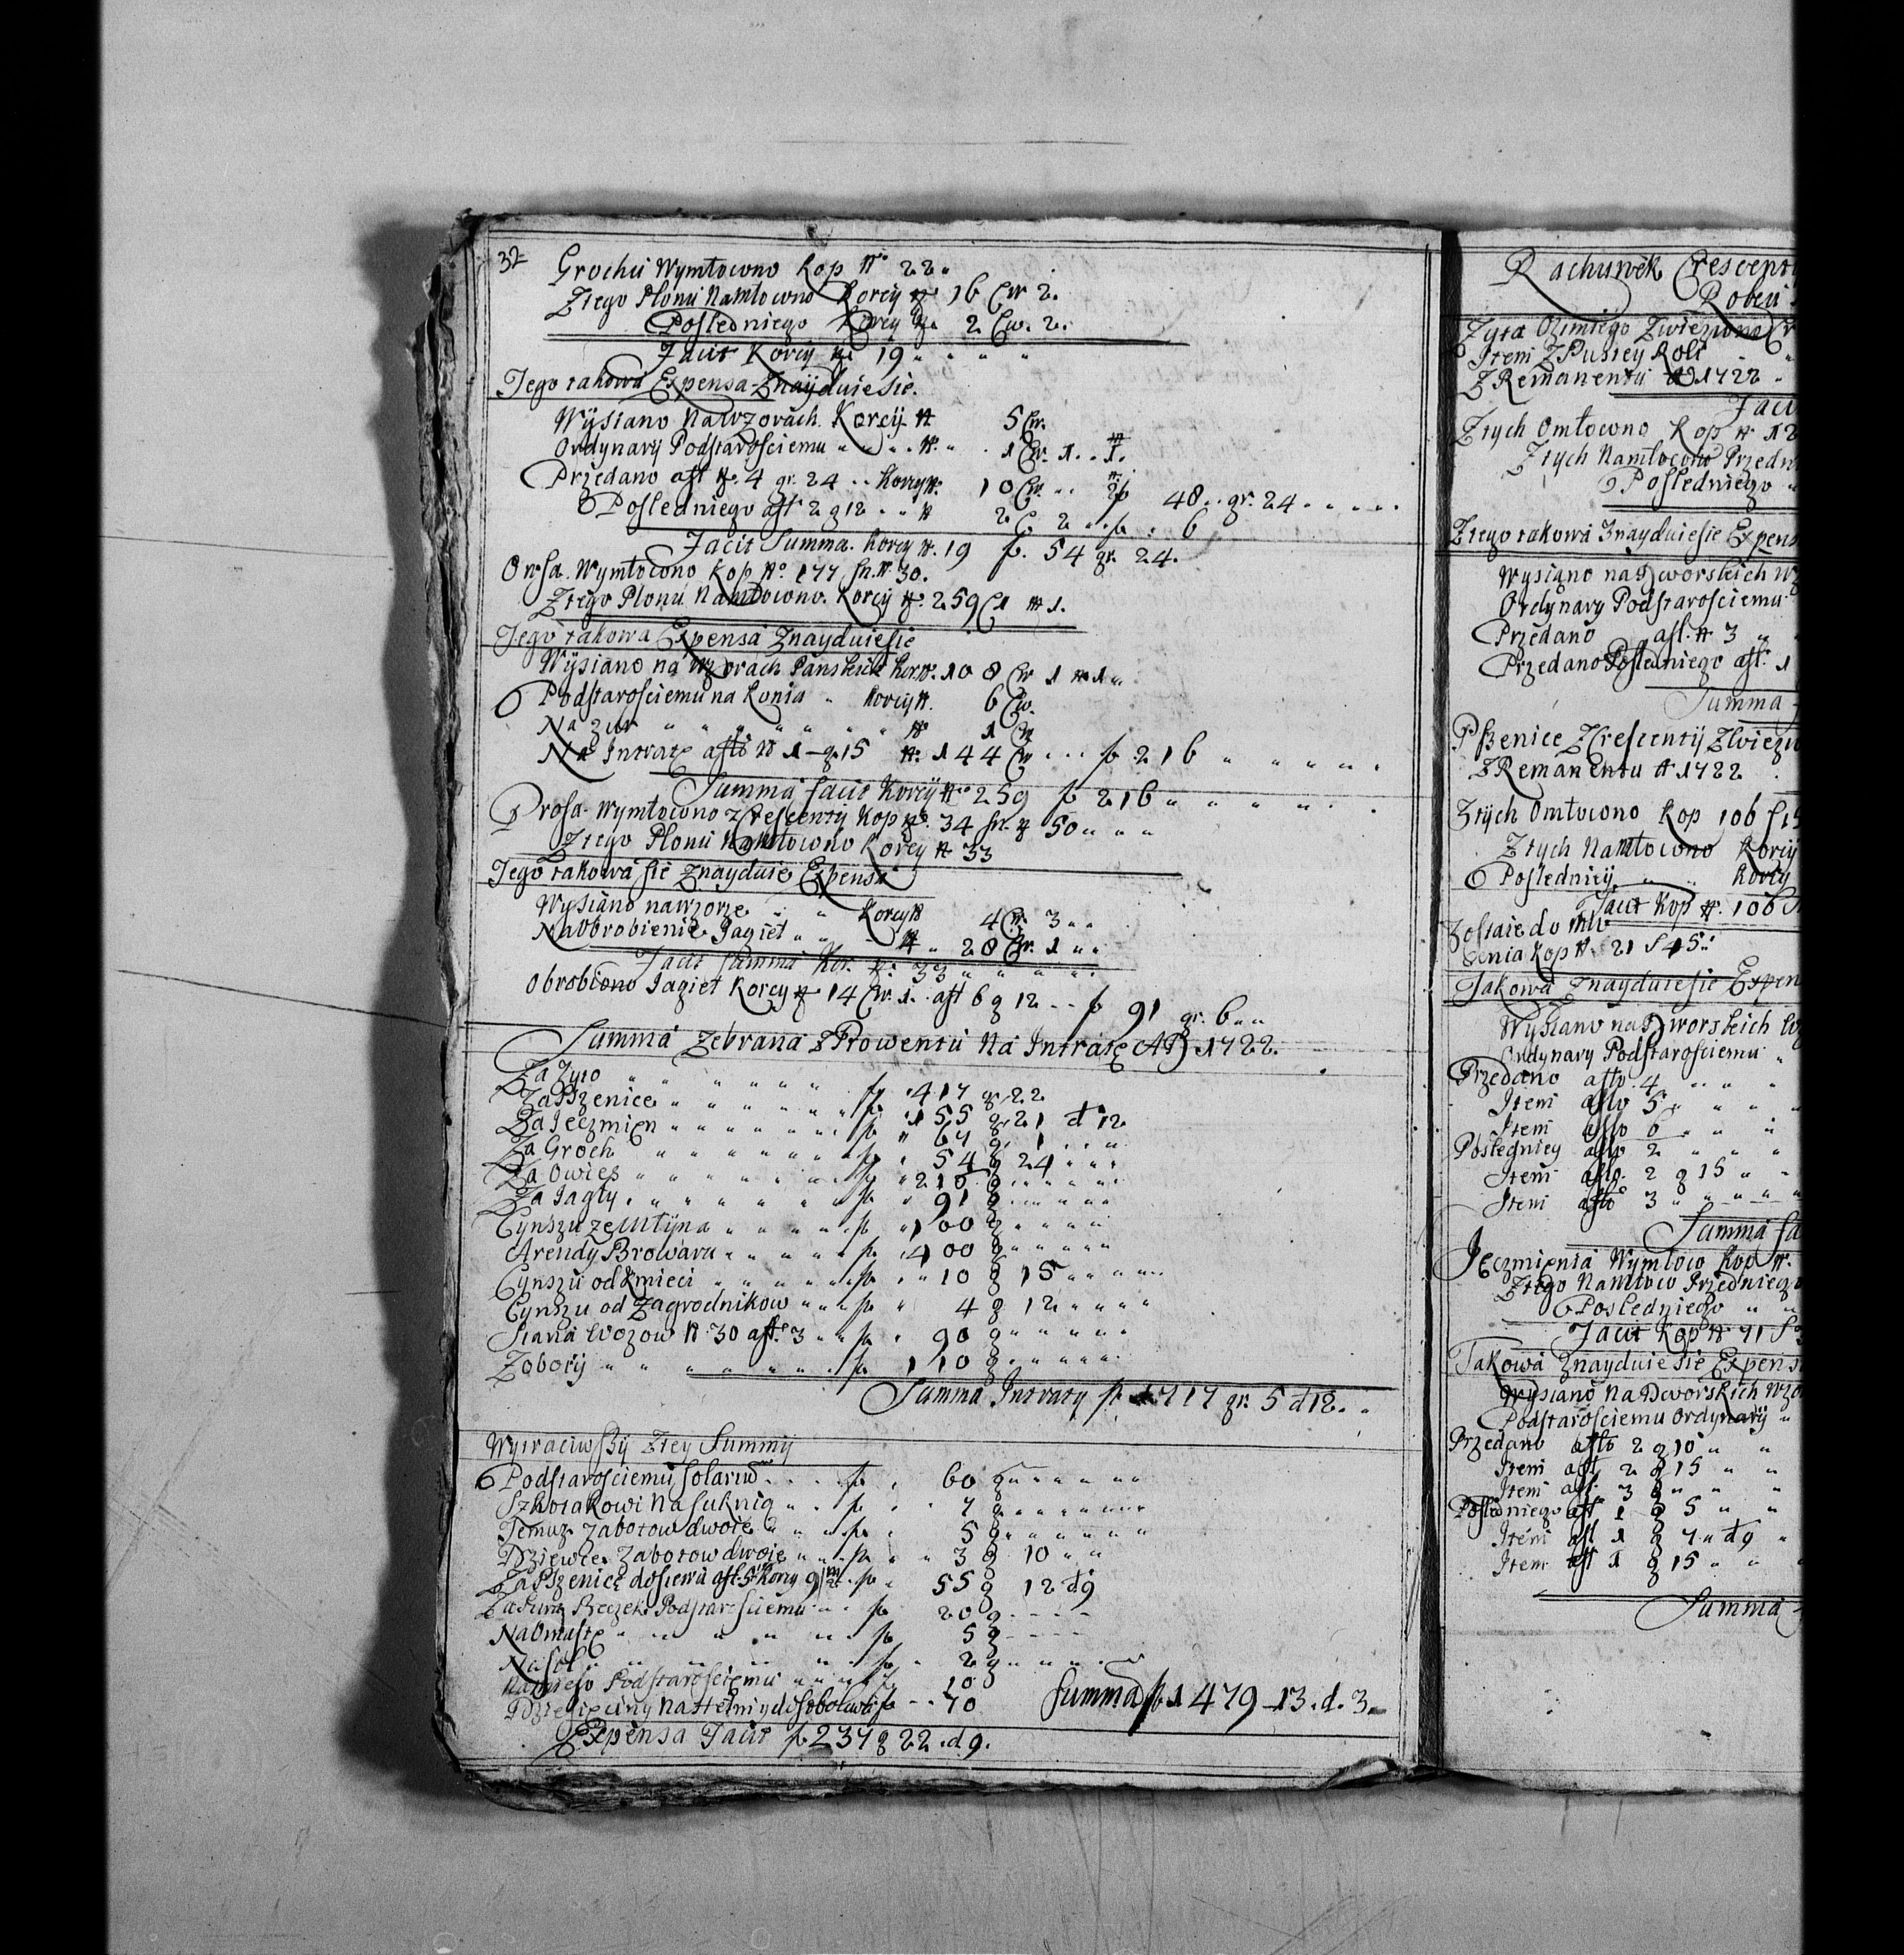 32
Grochu Wymłocono Kop No 22.
Ztego Plonu Namłocono Korcy No 16 Cw 2.
Posledniego Korcy No 2 Cw. 2.
Facit Korcy No 19
Tego takowa Expensa Znayduie sie.
Wysiano Na Wzorach Korcy N 5 Cw.
Ordynary Podstarosciemu N. 1 Cw. 1. 1.
Przedano ast No. 4 gr. 24 Korcy N. 10 Cw. f 48 gr. 24
Posledniego ast 2 g 12 N 2 C 2 f. 6
Facit Summa. Korcy N. 19 f. 54 gr. 24.
Owsa Wymłocono Kop No 177 sn. N. 30.
Ztego Plonu Namłocono. Korcy No. 259 C 1 N 1.
Tego takowa Expensa Znayduiesie
Wysiano na Wzorach Panskich Kor. N. 108 Cw 1 N 1
Podstarosciemu na Konia Korcy N. 6 Cw.
Na N 1 Cw
Na Intratę asto N 1 g 15 N. 144 Cw f 216
Summa facit Korcy No 259 f 216
Prosa Wymłocono z Crescenty Kop No. 34 sn. N 50
Ztego Plonu Namłocono Korcy N 33
Tego takowa sie Znayduie Expensa
Wysiano na Wzorze Korcy N 4 Cw. 3
Na Obrobienie Jagieł N 28 Cw. 1
Facit Summa Kor. N. 33
Obrobiono Jagieł Korcy No 14 Cw. 1. ast 6 g 12 f 91 gr. 6
Summa Zebrana z Prowentu Na Intratę AD 1722.
Za Zyto f 417 g 22
Za Pszenice f 155 g 21 d 12
Za Jeczmien f 67 g 1
Za Groch f 54 g 24
Za Owies f 216 g
Za Jagły f 91 g
Cynszu ze Młyna f 100 g
Arendy Browaru f 400 g
Cynszu od Kmieci f 10 g 15
Cynszu od Zagrodnikow f 4 g 12
Siana Wozow N 30 ast. 3 f 90 g
Zobory f 110 g
Summa Intraty f 1717 gr. 5 d 12.
Wytraciwszy Ztey Summy
Podstarosciemu Solariu f 60 g
Szkotakowi Na Suknią f 7 g
Temuz Zabotow dwoie f 5 g
Dziewce Zabotow dwoie f 3 g 10
Za Pszenicę dosiewu ast. 5 Korcy 9 f 55 g 12 d 9
Beczek Podstarosciemu f 20 g
Na Omastę f 5 g
Na Sol f 2 g
Na Podstarosciemu f 10
Dziesięciny f 70 Summa f 1479 13. d. 3
Expensa Facit f 237 g 22 d 9.
Rachunek Crescenty
Robu
Zyta Ozimiego Zwieziono
Item Z Pustey Roli
Z Remanentu A 1722
Facit
Ztych Omłocono Kop N 12
Ztych Namłocono Przedn
Posledniego
Ztego takowa Znayduiesie Expens
Wysiano na Dworskich Wz
Ordynary Podstarosciemu
Przedano ast. N 3
Przedano Posledniego ast. 1
Summa
Pszenice Z Crescenty Zwiezi
Z Remanentu A 1722
Ztych Omłocono Kop 106
Ztych Namłocono Korcy
Posledniey Korcy
Facit Kop N. 106
Zostaie do mło
cenia Kop N. 21 S 45
Takowa Znayduiesie Expen
Wysiano na Dworskich W
Ordynary Podstarosciemu
Przedano asto 4
Item asto 5
Item asto 6
Posledniey asto 2
Item asto. 2 g 15
Item asto 3
Summa fa
Jęczmienia Wymłoco Kop N.
Ztego Namłoco Przedniego
Posledniego
Facit Kop N 71
Takowa Znayduie sie Expens
Wysiano Na Dworskich Wzo
Podstarosciemu Ordynary
Przedano asto 2 g 10
Item ast. 2 g 15
Item ast. 3 g
Posledniego ast 1 g 5
Item ast 1 g 7 d 9
Item ast 1 g 15
Summa